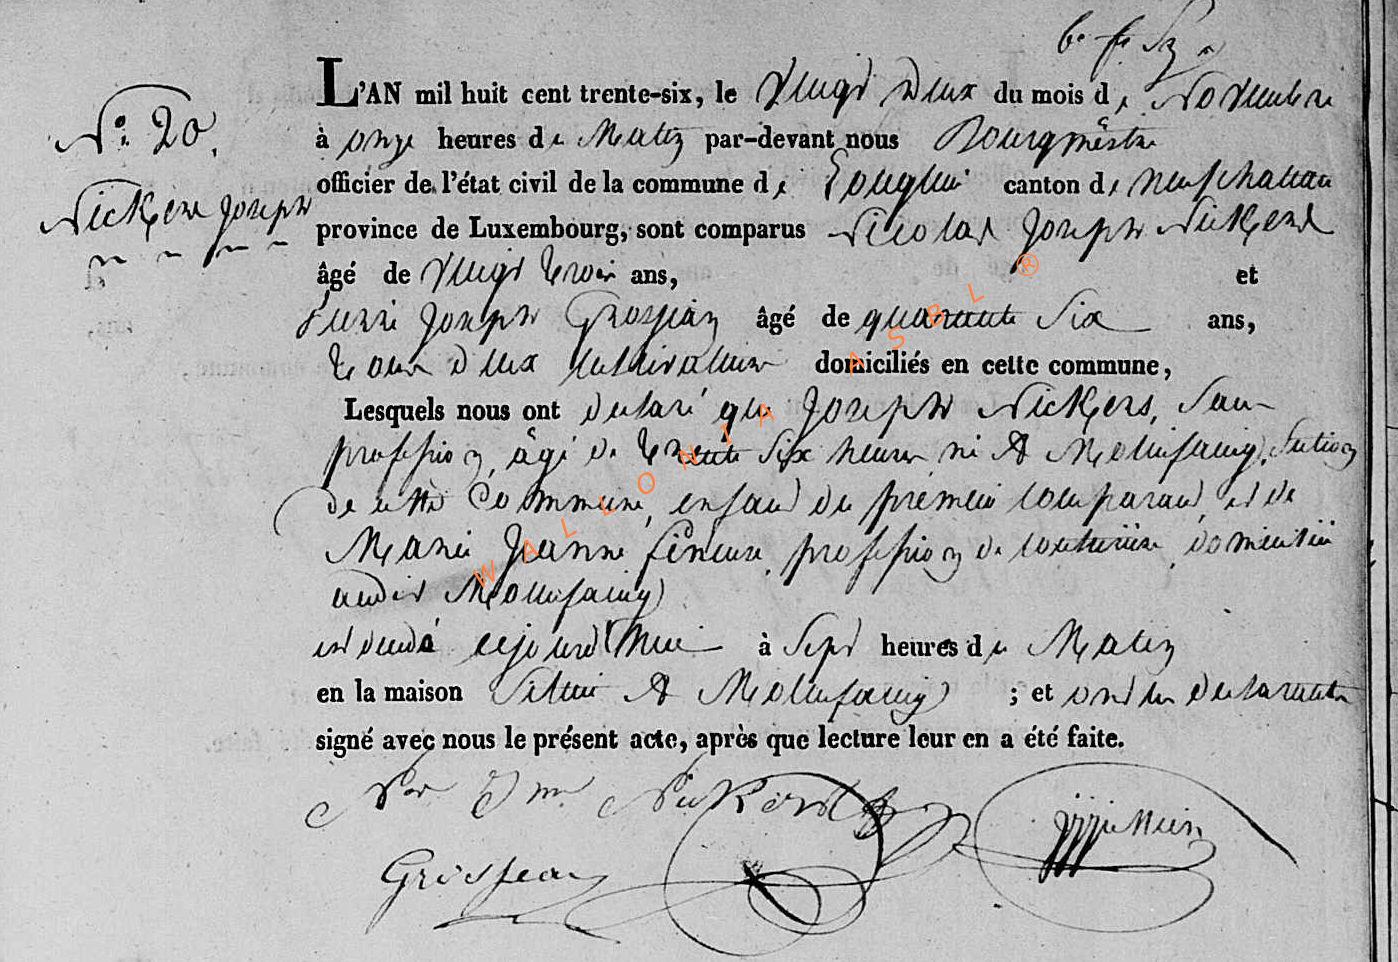 N.° 20.
Nickers Joseph
L'AN mil huit cent trente-six, le Vingt Deux du mois de Novembre
à onze heures du Matin par-devant nous Bourgmêstre
officier de l'état civil de la commune de Longlier canton de neufchateau
province de Luxembourg, sont comparus Nicolas Joseph Nickers
âgé de Vingt trois ans, et
Pierre Joseph Grosjean âgé de quarante Six ans,
tous deux cultivateurs domiciliés en cette commune,
Lesquels nous ont declaré que Joseph Nickers, Sans
profession, âgé de trente Six heures né A Molinfaing, Section
de cette Commune, enfant du premier comparant, et de
Marie Jeanne, profession de couturière, domiciliée
audit Molinfaing
est decedé cejourd'hui à Sept heures du Matin
en la maison Sittuée A Molinfaing ; et ont les declarants
signé avec nous le présent acte, après que lecture leur en a été faite.
Nickers
Grosjean
WALLONIA ASBL ®